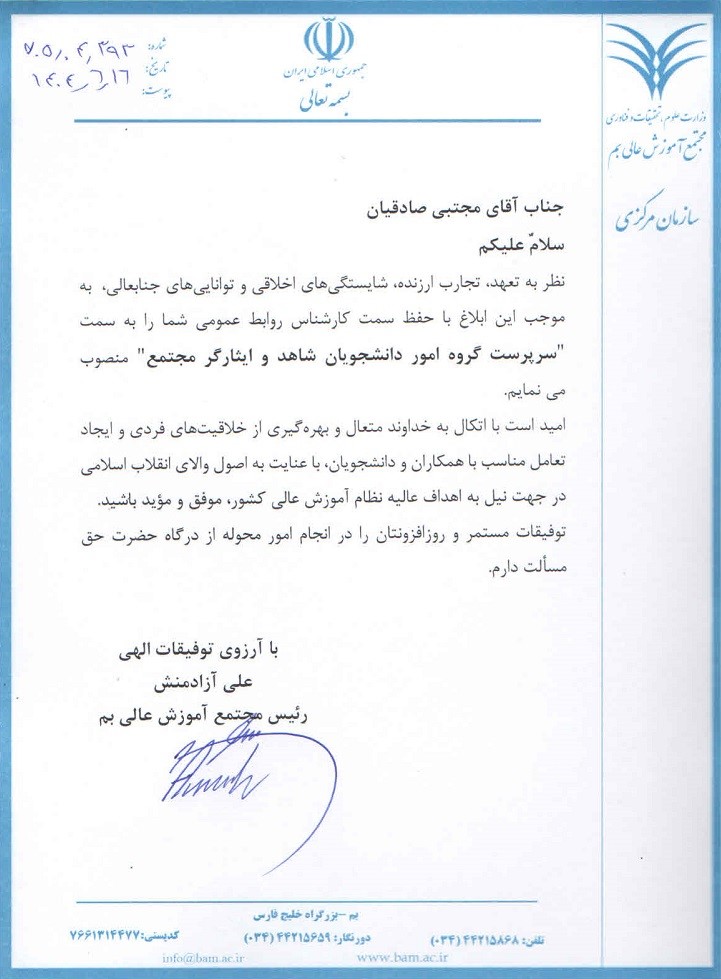 جمهوری اسلامی ایران
بسمه تعالی
شماره:
تاریخ: ۱۴۰۴/۶/۱۶
پیوست:
وزارت علوم، تحقیقات و فناوری
مجتمع آموزش عالی بم
سازمان مرکزی
جناب آقای مجتبی صادقیان
سلامٌ علیکم
نظر به تعهد، تجارب ارزنده، شایستگی‌های اخلاقی و توانایی‌های جنابعالی، به
موجب این ابلاغ با حفظ سمت کارشناس روابط عمومی شما را به سمت
"سرپرست گروه امور دانشجویان شاهد و ایثارگر مجتمع" منصوب
می نمایم.
امید است با اتکال به خداوند متعال و بهره‌گیری از خلاقیت‌های فردی و ایجاد
تعامل مناسب با همکاران و دانشجویان، با عنایت به اصول والای انقلاب اسلامی
در جهت نیل به اهداف عالیه نظام آموزش عالی کشور، موفق و مؤید باشید.
توفیقات مستمر و روزافزونتان را در انجام امور محوله از درگاه حضرت حق
مسألت دارم.
با آرزوی توفیقات الهی
علی آزادمنش
رئیس مجتمع آموزش عالی بم
بم -بزرگراه خلیج فارس
تلفن: ۴۴۲۱۵۸۶۸ (۰۳۴) دورنگار: ۴۴۲۱۵۶۵۹ (۰۳۴) کدپستی: ۷۶۶۱۳۱۴۴۷۷
www.bam.ac.ir info@bam.ac.ir